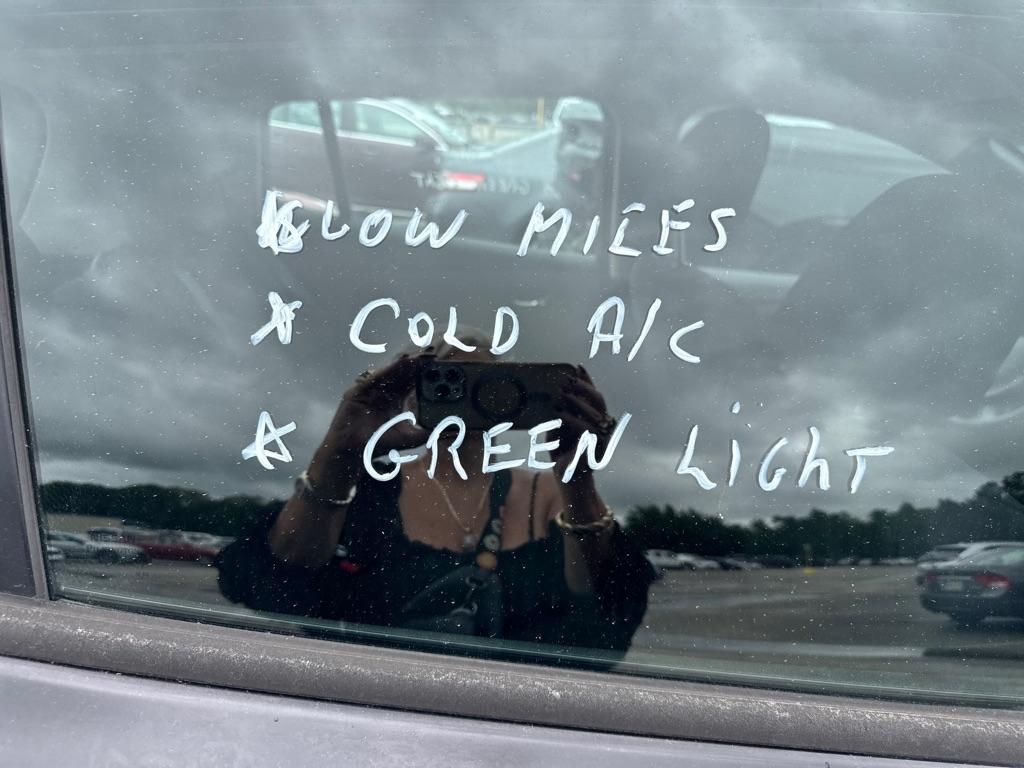 * LOW MILES
* COLD A/C
* GREEN LighT